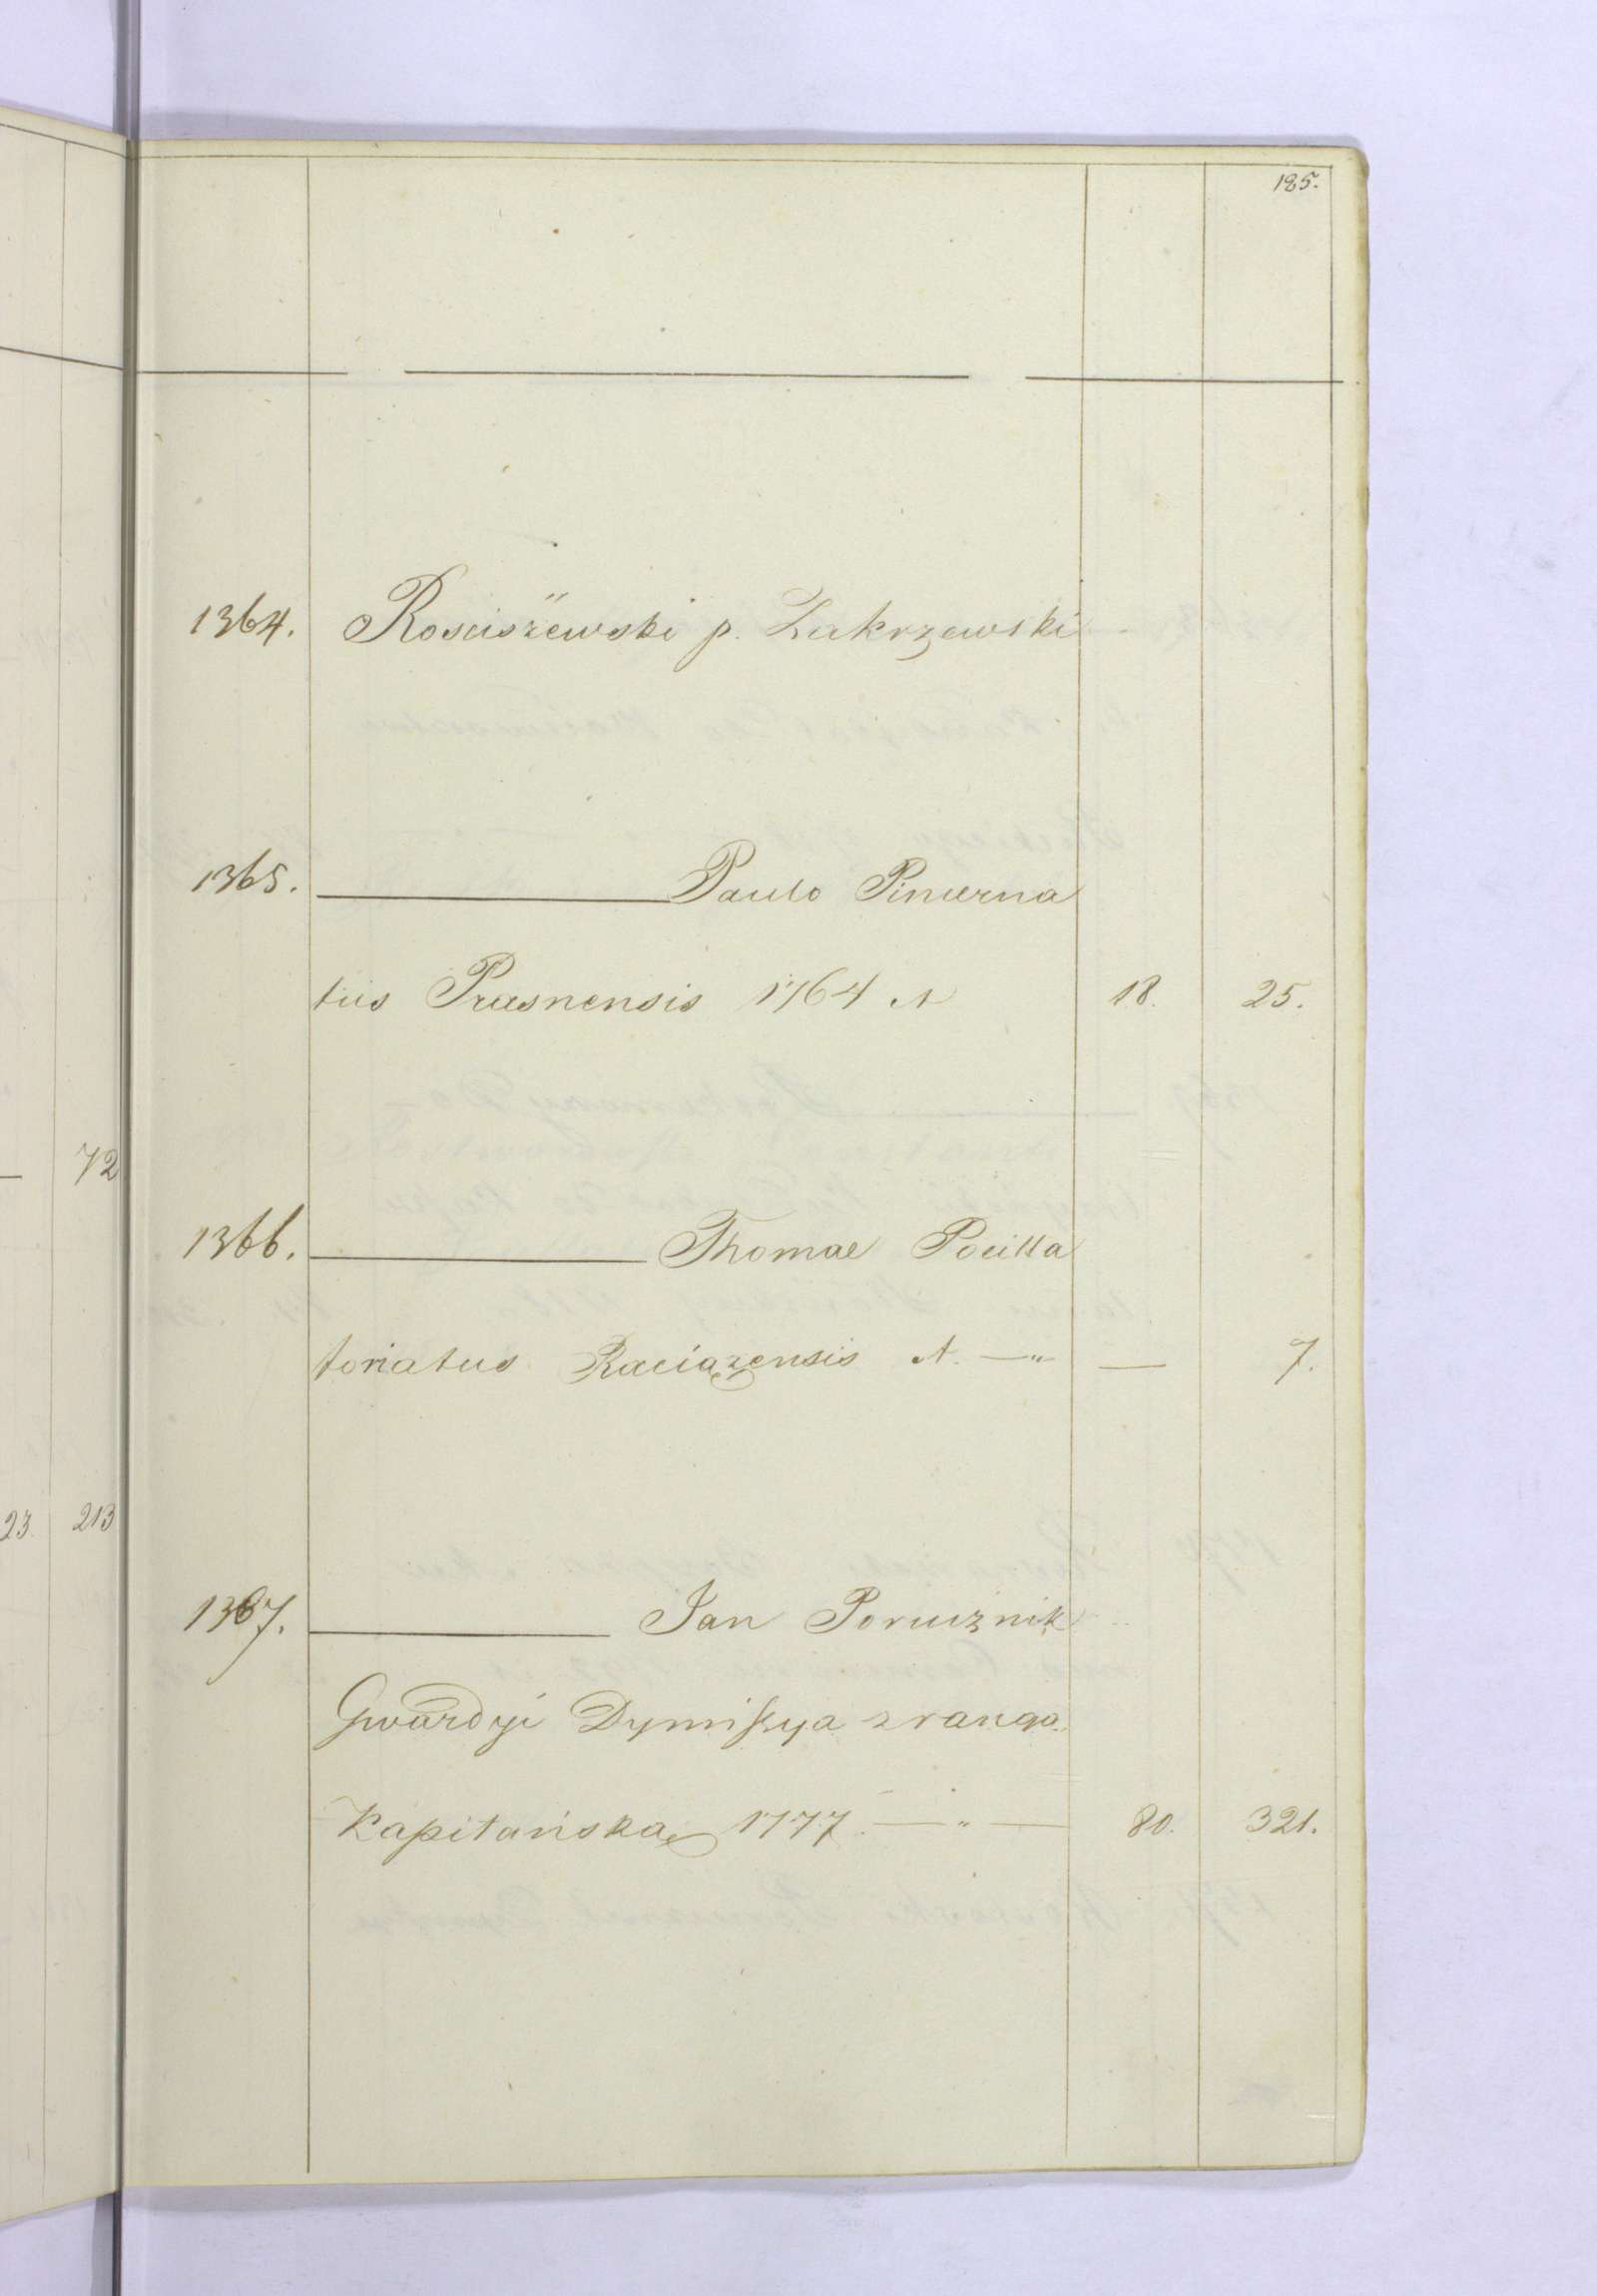 185.
1364. Rosciszewski p. Zakrzewski
1365. ——— Paulo Pincerna
tus Prasnensis 1764 N 18. 25.
72
1366. ——— Thomae Pocilla
toriatus Raciązensis N. —"— 7.
23. 213
1367. ——— Jan Porucznik
Gwardyi Dymissya z rangą
Kapitańską 1777. —"— 80. 321.